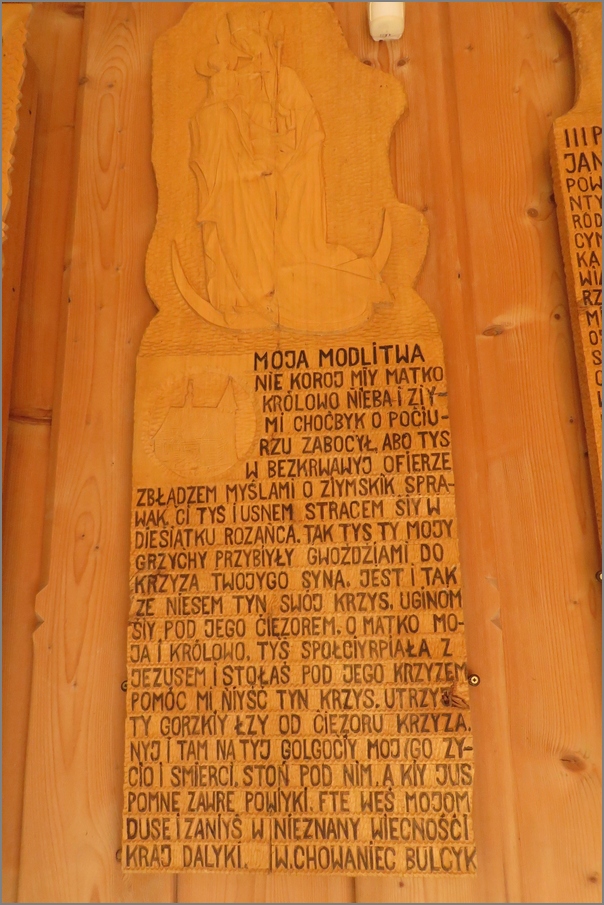 MOJA MODLITWA
NIE KOROJ MIY MATKO
KRÓLOWO NIEBA I ZIY-
MI CHOĆBYK O POĆIU-
RZU ZABOCYŁ, ABO TYS
W BEZKRWAWYJ OFIERZE
ZBŁĄDZEM MYŚLAMI O ZIYMSKIK SPRA-
WAK. CI TYS I USNEM STRACEM SIY W
DIESIATKU ROZAŃCA. TAK TYS TY MOJY
GRZYCHY PRZYBIYŁY GWOŹDZIAMI DO
KRZYZA TWOJYGO SYNA. JEST I TAK
ZE NIESEM TYN SWÓJ KRZYS. UGINOM
SIY POD JEGO CIĘZOREM. O MATKO MO-
JA I KRÓLOWO, TYŚ SPOŁCIYRPIAŁA Z
JEZUSEM I STOŁAŚ POD JEGO KRZYZEM
POMÓC MI NIYŚĆ TYN KRZYS. UTRZYJ
TY GORZKIY ŁZY OD CIĘZORU KRZYZA.
NYJ I TAM NA TYJ GOLGOCIY MOJEGO ZY-
CIO I SMIERCI, STOŃ POD NIM. A KIY JUS
POMNE ZAWRE POWIYKI. FTE WEŚ MOJOM
DUSE I ZANIYŚ W NIEZNANY WIECNOŚCI
KRAJ DALYKI. W. CHOWANIEC BULCYK
III P
JAN
POW
NTY
RÓD
CYN
KĄ
WIA
RZ
MI